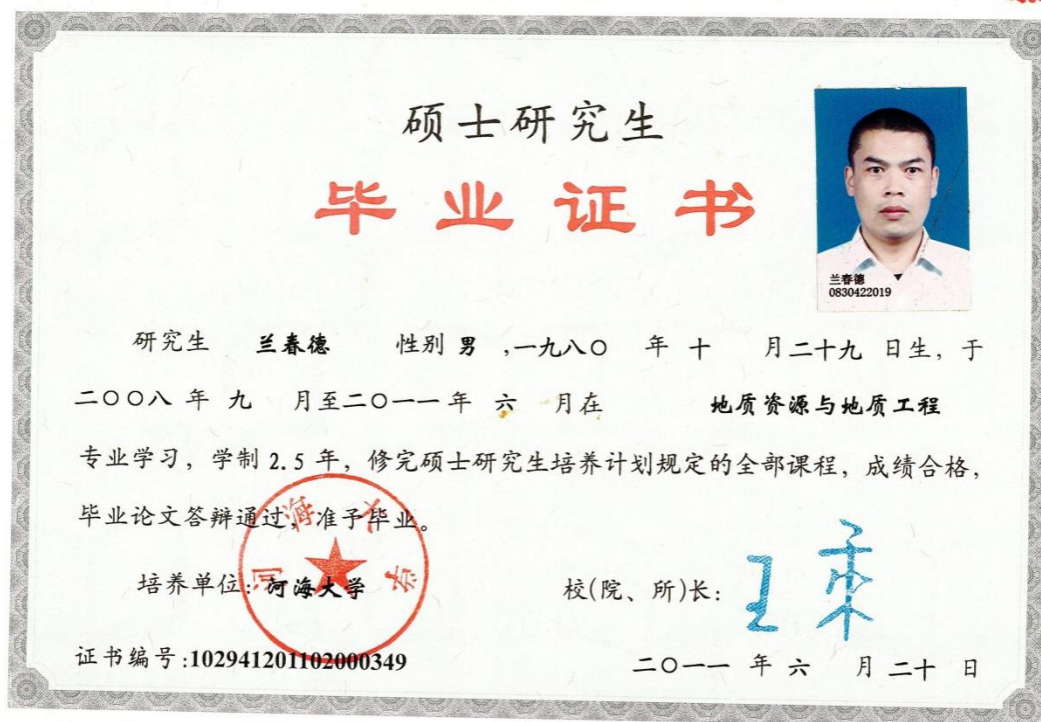 硕士研究生
毕业证书
兰春德
0830422019
研究生 兰春德 性别 男 ,一九八〇 年 十 月二十九 日生，于
二〇〇八 年 九 月至二〇一一年 六 月在 地质资源与地质工程
专业学习，学制 2.5 年，修完硕士研究生培养计划规定的全部课程，成绩合格，
毕业论文答辩通过，准予毕业。
河海大学
培养单位：河海大学 校(院、所)长：王乘
证书编号:102941201102000349 二〇一一 年 六 月 二十 日